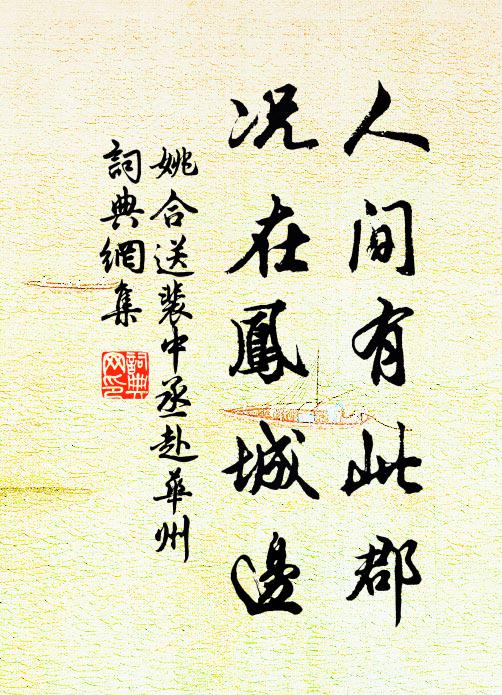 人間有此郡
况在鳳城邊
姚合送裴中丞赴華州
詞典網集
詞典
网印